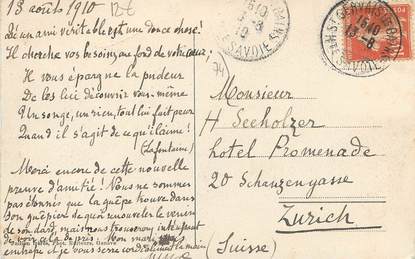 13 août 1910
Qu'un ami véritable est une douce chose!
Il cherche vos besoins au fond de votre cœur;
Il vous épargne la pudeur
De les lui découvrir vous-même
Un songe, un rien, tout lui fait peur
Quand il s'agit de ce qu'il aime!
(Lafontaine)
Merci encore de cette nouvelle
preuve d'amitié! Nous ne sommes
pas étonnés que la guêpe trouve dans
son guêpier de quoi renouveler le venin
de son dard, mais nous trouverons
voir cela de près. Mon mari
et je vous serre cordialement la main
74
ST GERVAIS-LES-BAINS
16 10
13 -8
10
HTE SAVOIE
POSTES
Monsieur
H Seeholzer
hôtel Promenade
20 Schanzengasse
Zurich
(Suisse)